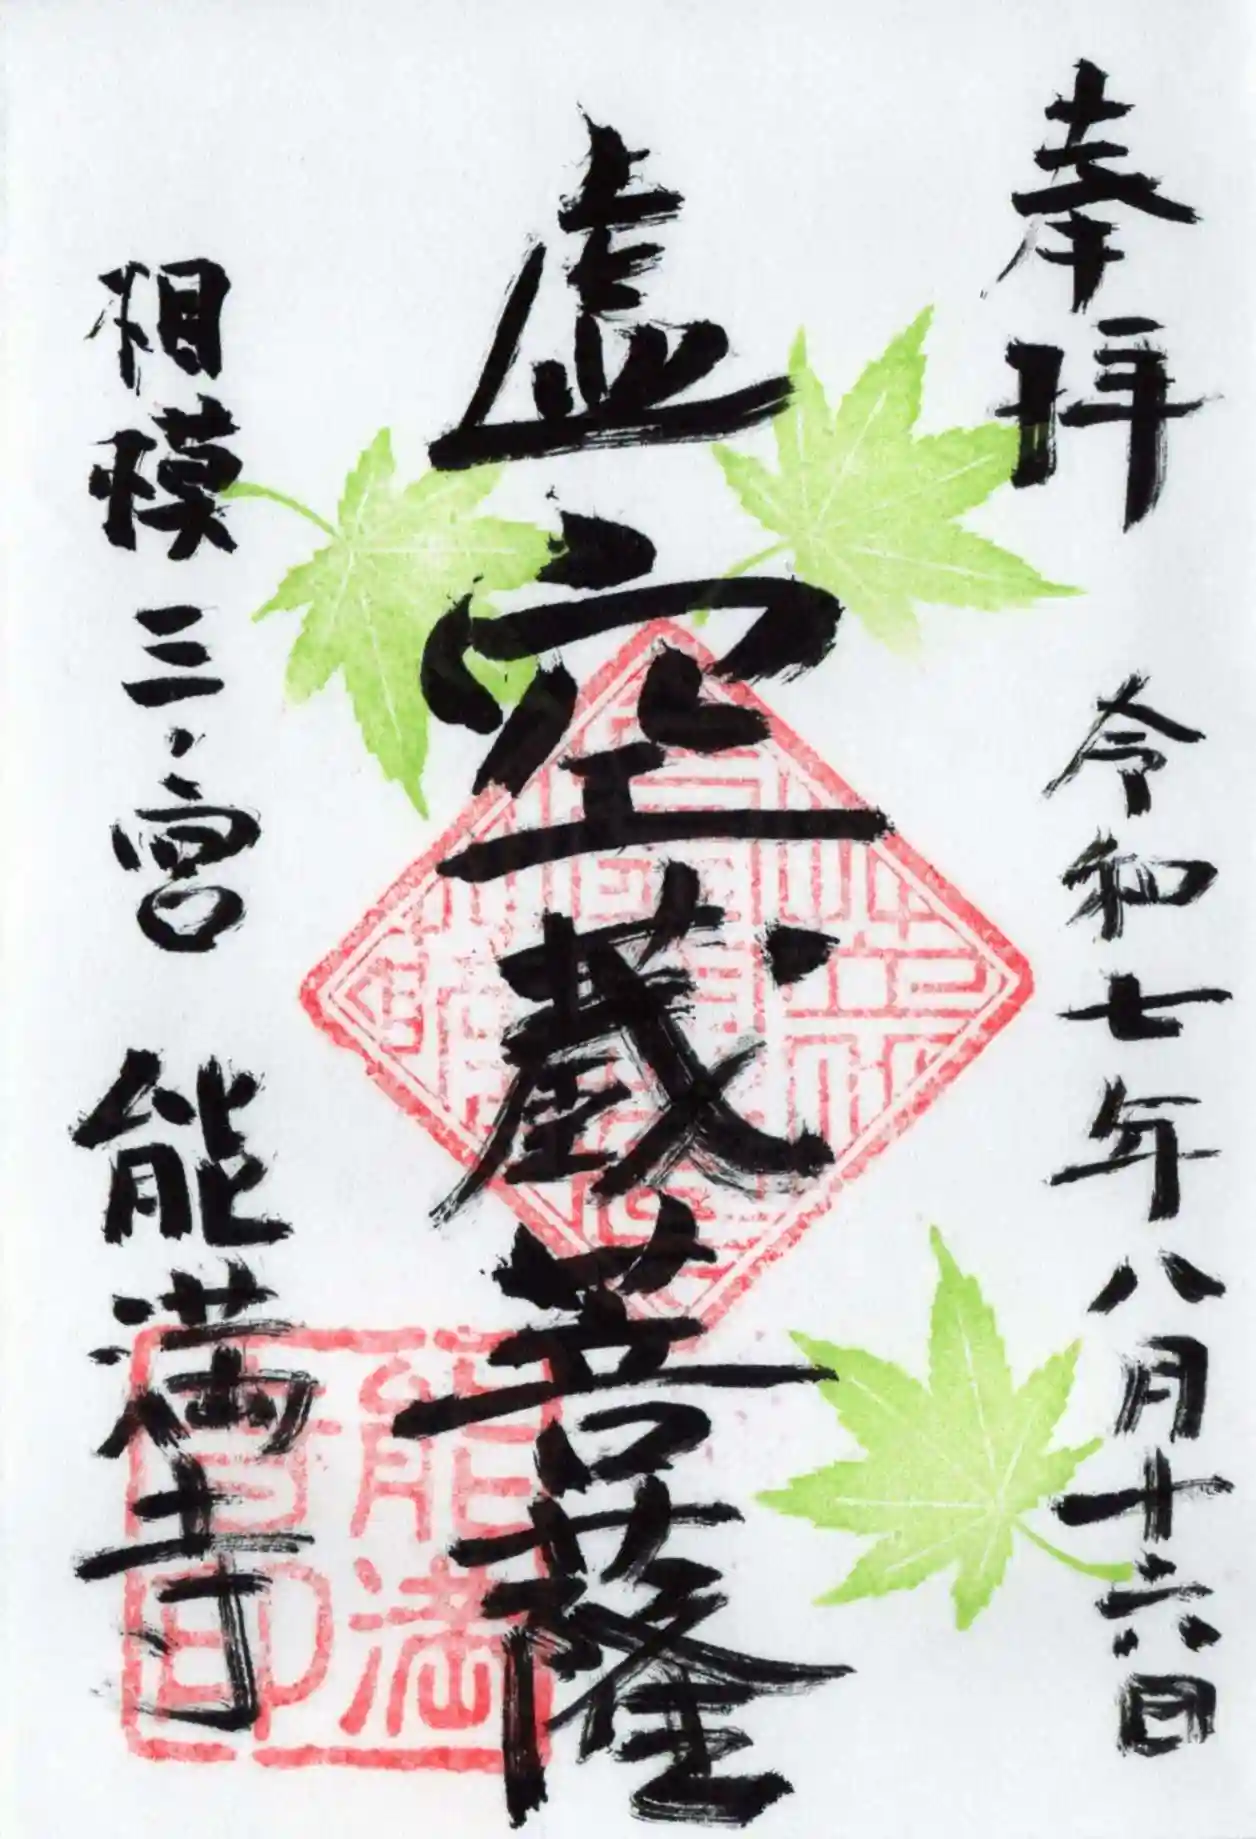 奉拝
令和七年八月十六日
虚空蔵菩薩
相模三ノ宮
能満寺
能満寺印